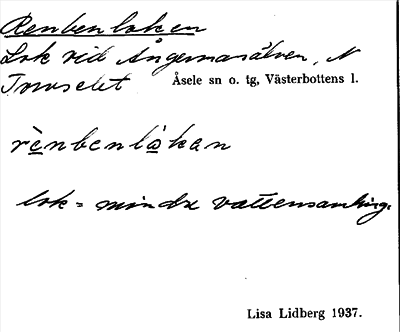 Renbenloken
Lok vid Ångermanälven, N
Åsele sn o. tg, Västerbottens l.
rènbenlòkan
lok = mindre vattensamling.
Lisa Lidberg 1937.